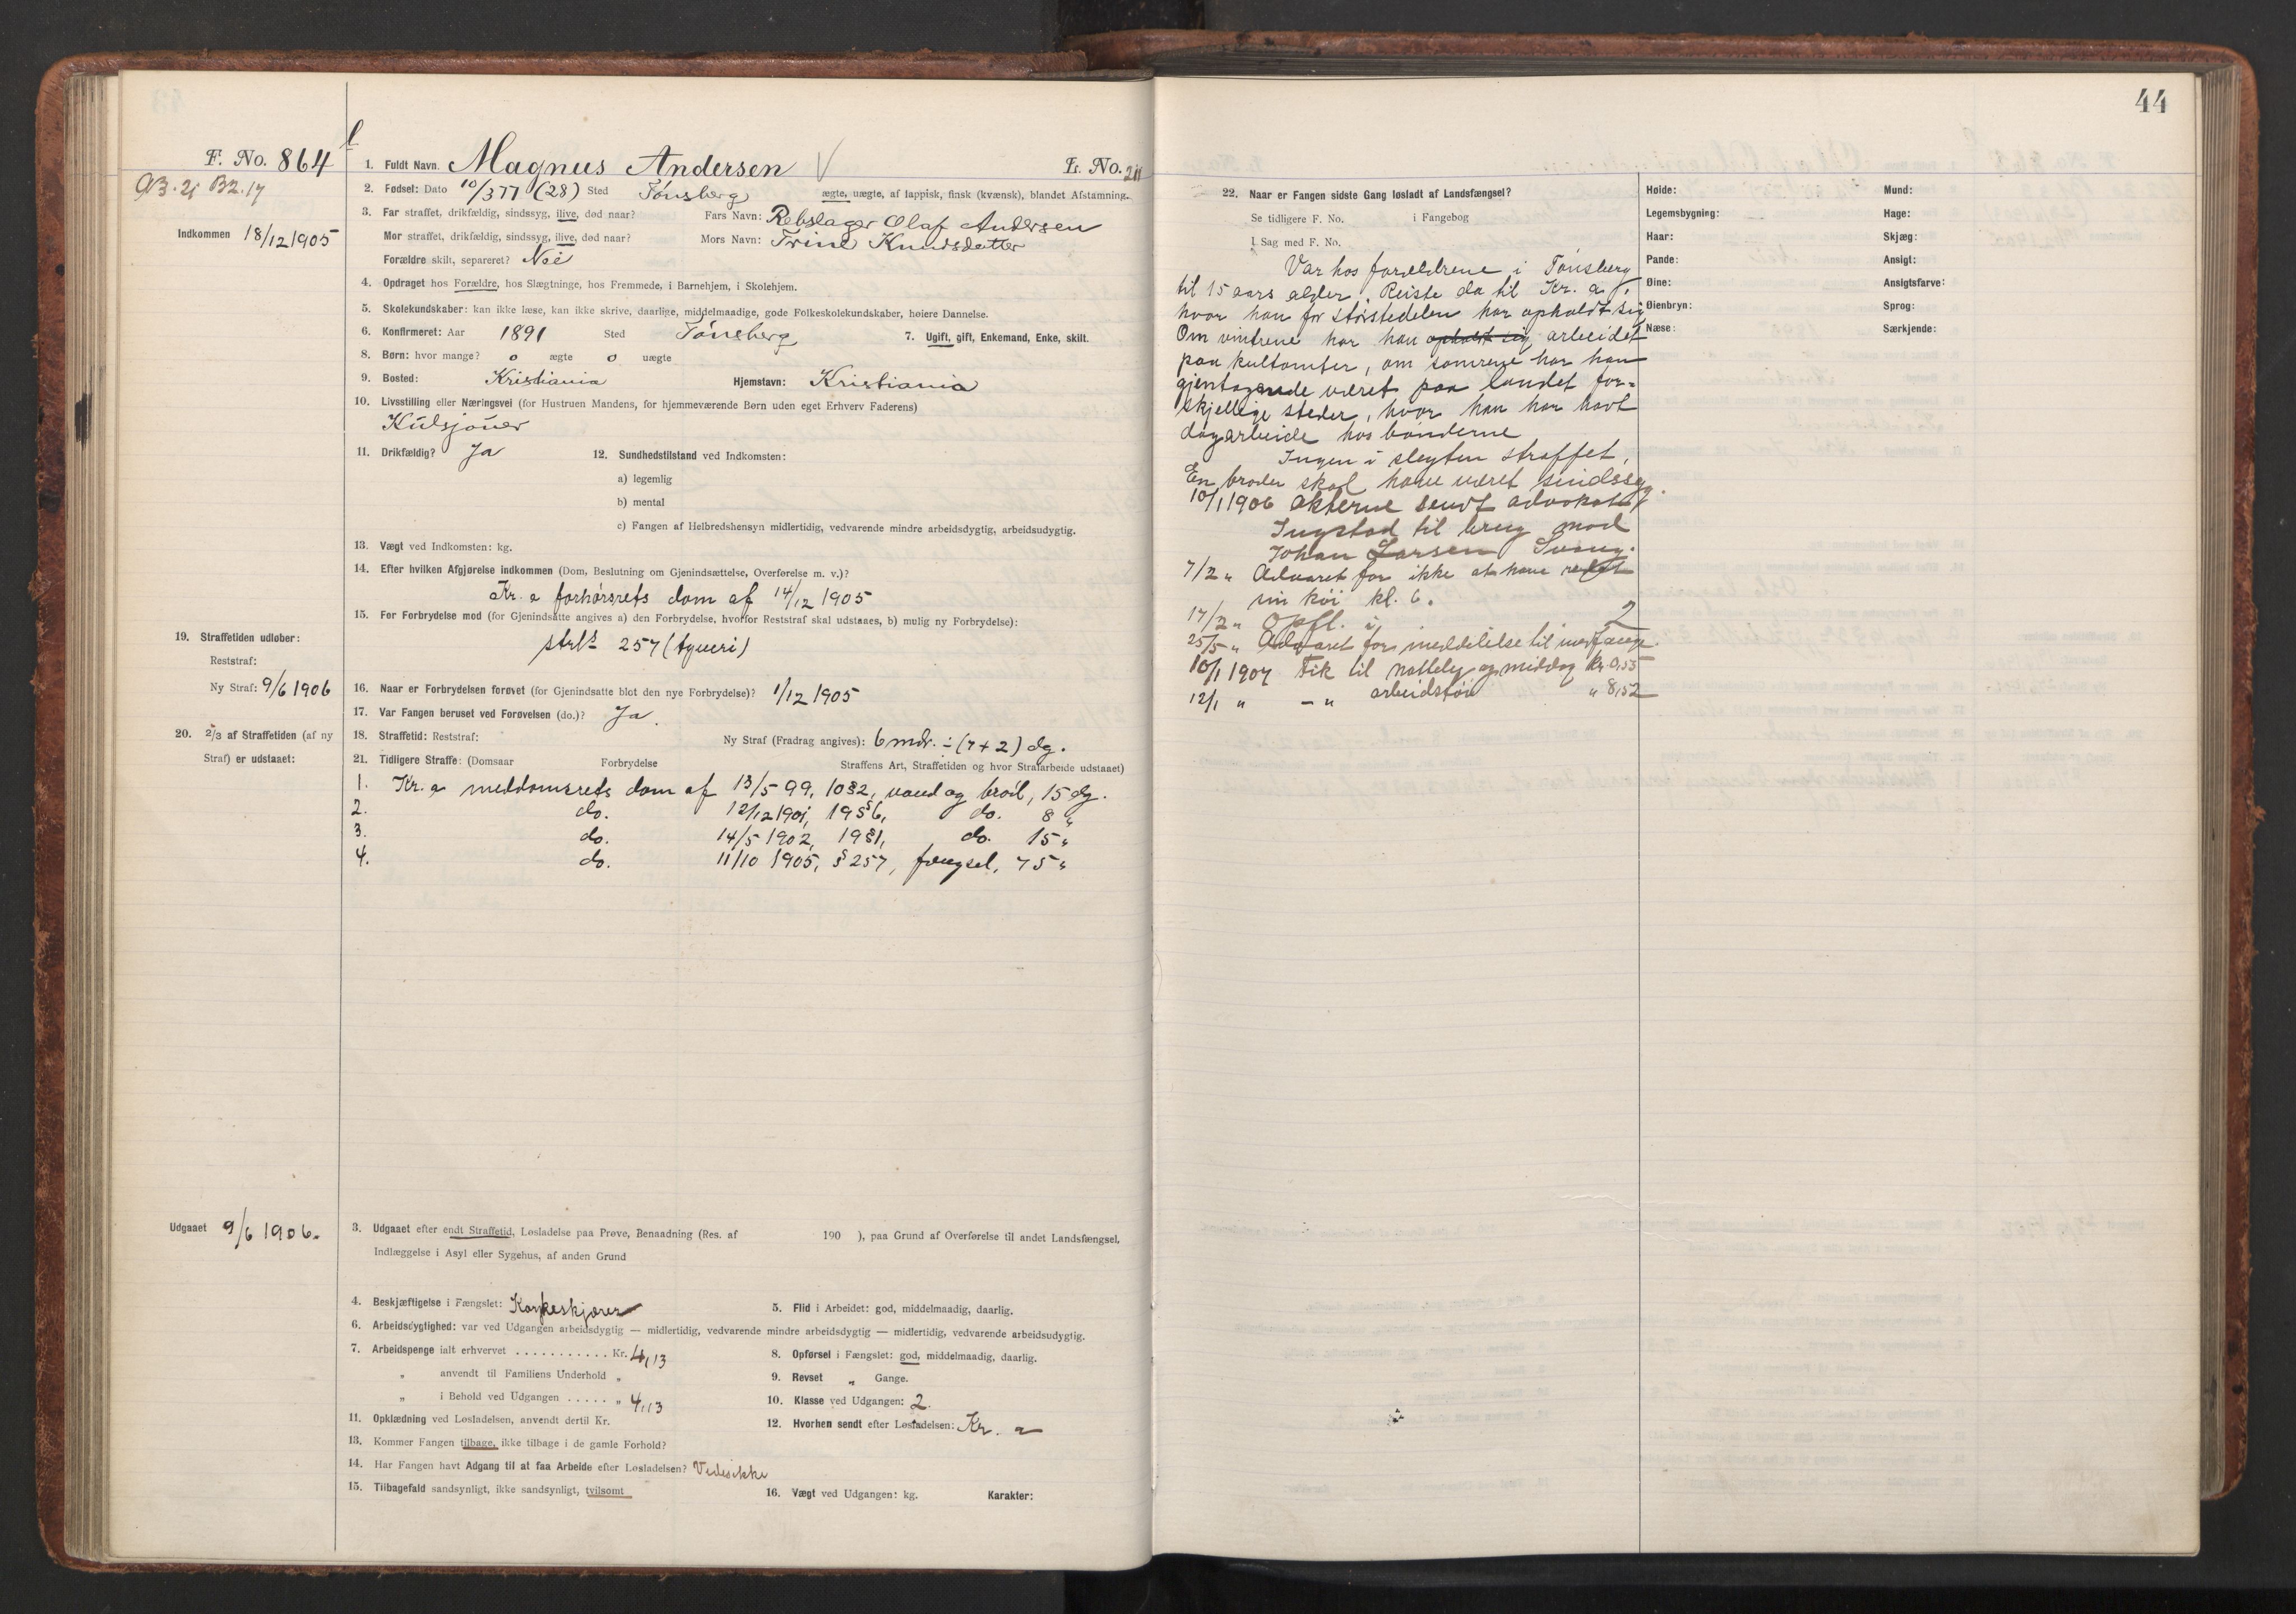 44
F. No. 864
1. Fuldt Navn. Magnus Andersen
L. No. 211
2. Fødsel: Dato 10/3 77 (28) Sted Tønsberg ægte, uægte, af lappisk, finsk (kvænsk), blandet Afstamning.
3. Far straffet, drikfældig, sindssyg, ilive, død naar? Fars Navn: Rebslager Olaf Andersen
Indkommen 18/12 1905
Mor straffet, drikfældig, sindssyg, ilive, død naar? Mors Navn: Trine Knudsdatter
Forældre skilt, separeret? Nei
4. Opdraget hos Forældre, hos Slægtninge, hos Fremmede, i Barnehjem, i Skolehjem.
5. Skolekundskaber: kan ikke læse, kan ikke skrive, daarlige, middelmaadige, gode Folkeskolekundskaber, høiere Dannelse.
6. Konfirmeret: Aar 1891 Sted Tønsberg 7. Ugift, gift, Enkemand, Enke, skilt.
8. Børn: hvor mange? 0 ægte 0 uægte
9. Bosted: Kristiania Hjemstavn: Kristiania
10. Livsstilling eller Næringsvei (for Hustruen Mandens, for hjemmeværende Børn uden eget Erhverv Faderens)
Kulsjouer
11. Drikfældig? Ja 12. Sundhedstilstand ved Indkomsten:
a) legemlig
b) mental
c) Fangen af Helbredshensyn midlertidig, vedvarende mindre arbeidsdygtig, arbeidsudygtig.
13. Vægt ved Indkomsten: kg.
14. Efter hvilken Afgjørelse indkommen (Dom, Beslutning om Gjenindsættelse, Overførelse m. v.)?
Kr. a forhørsrets dom af 14/12 1905
15. For Forbrydelse mod (for Gjenindsatte angives a) den Forbrydelse, hvorfor Reststraf skal udstaaes, b) mulig ny Forbrydelse):
strl § 257 (tyveri)
19. Straffetiden udløber:
Reststraf:
Ny Straf: 9/6 1906
16. Naar er Forbrydelsen forøvet (for Gjenindsatte blot den nye Forbrydelse)? 1/12 1905
17. Var Fangen beruset ved Forøvelsen (do.)? Ja.
20. 2/3 af Straffetiden (af ny
Straf) er udstaaet:
18. Straffetid: Reststraf: Ny Straf (Fradrag angives): 6 mdr. ÷ (7 + 2) dg.
21. Tidligere Straffe: (Domsaar Forbrydelse Straffens Art, Straffetiden og hvor Strafarbeide udstaaet)
1. Kr. a meddomsrets dom af 13/5 99, 10§2, vand og brød, 15 dg.
2. do. 12/12 1901, 19§6, do. 8 "
3. do. 14/5 1902, 19§1, do. 15 "
4. do. 11/10 1905, § 257, fængsel, 75 "
Udgaaet 9/6 1906.
3. Udgaaet efter endt Straffetid, Løsladelse paa Prøve, Benaadning (Res. af 190 ), paa Grund af Overførelse til andet Landsfængsel,
Indlæggelse i Asyl eller Sygehus, af anden Grund
4. Beskjæftigelse i Fængslet: Korkeskjærer 5. Flid i Arbeidet: god, middelmaadig, daarlig.
6. Arbeidsdygtighed: var ved Udgangen arbeidsdygtig — midlertidig, vedvarende mindre arbeidsdygtig — midlertidig, vedvarende arbeidsudygtig.
7. Arbeidspenge ialt erhvervet ........... Kr. 4,13 8. Opførsel i Fængslet: god, middelmaadig, daarlig.
" anvendt til Familiens Underhold " 9. Revset " Gange.
" i Behold ved Udgangen ..... " 4,13 10. Klasse ved Udgangen: 2.
11. Opklædning ved Løsladelsen, anvendt dertil Kr. 12. Hvorhen sendt efter Løsladelsen: Kr. a
13. Kommer Fangen tilbage, ikke tilbage i de gamle Forhold?
14. Har Fangen havt Adgang til at faa Arbeide efter Løsladelsen? Vides ikke
15. Tilbagefald sandsynligt, ikke sandsynligt, tvilsomt 16. Vægt ved Udgangen: kg. Karakter:
22. Naar er Fangen sidste Gang løsladt af Landsfængsel?
Se tidligere F. No. i Fangebog
I Sag med F. No.
Var hos forældrene i Tønsberg
til 15 aars alder. Reiste da til Kr. a,
hvor han for størstedelen har opholdt sig
Om vintrene har han opholdt sig arbeidet
paa kultomter, om somrene har han
gjentagende været paa landet for=
skjellige steder, hvor han har havt
dagarbeide hos bønderne
Ingen i slegten straffet,
En broder skal have været sindssyg.
10/1 1906 Akterne sendt advokat
Ingstad til brug mod
Johan Larsen Svang.
7/2 " Advaret for ikke at have redet
sin køi kl. 6.
17/2 " Opfl. i 2
25/5 " Advaret for meddelelse til medfange.
10/1 1907 Fik til natteleg og middag Kr. 0,55
12/1 " - " arbeidstøi " 8,52
Høide:
Legemsbygning:
Haar:
Pande:
Øine:
Øienbryn:
Næse:
Mund:
Hage:
Skjæg:
Ansigt:
Ansigtsfarve:
Sprog:
Særkjende: